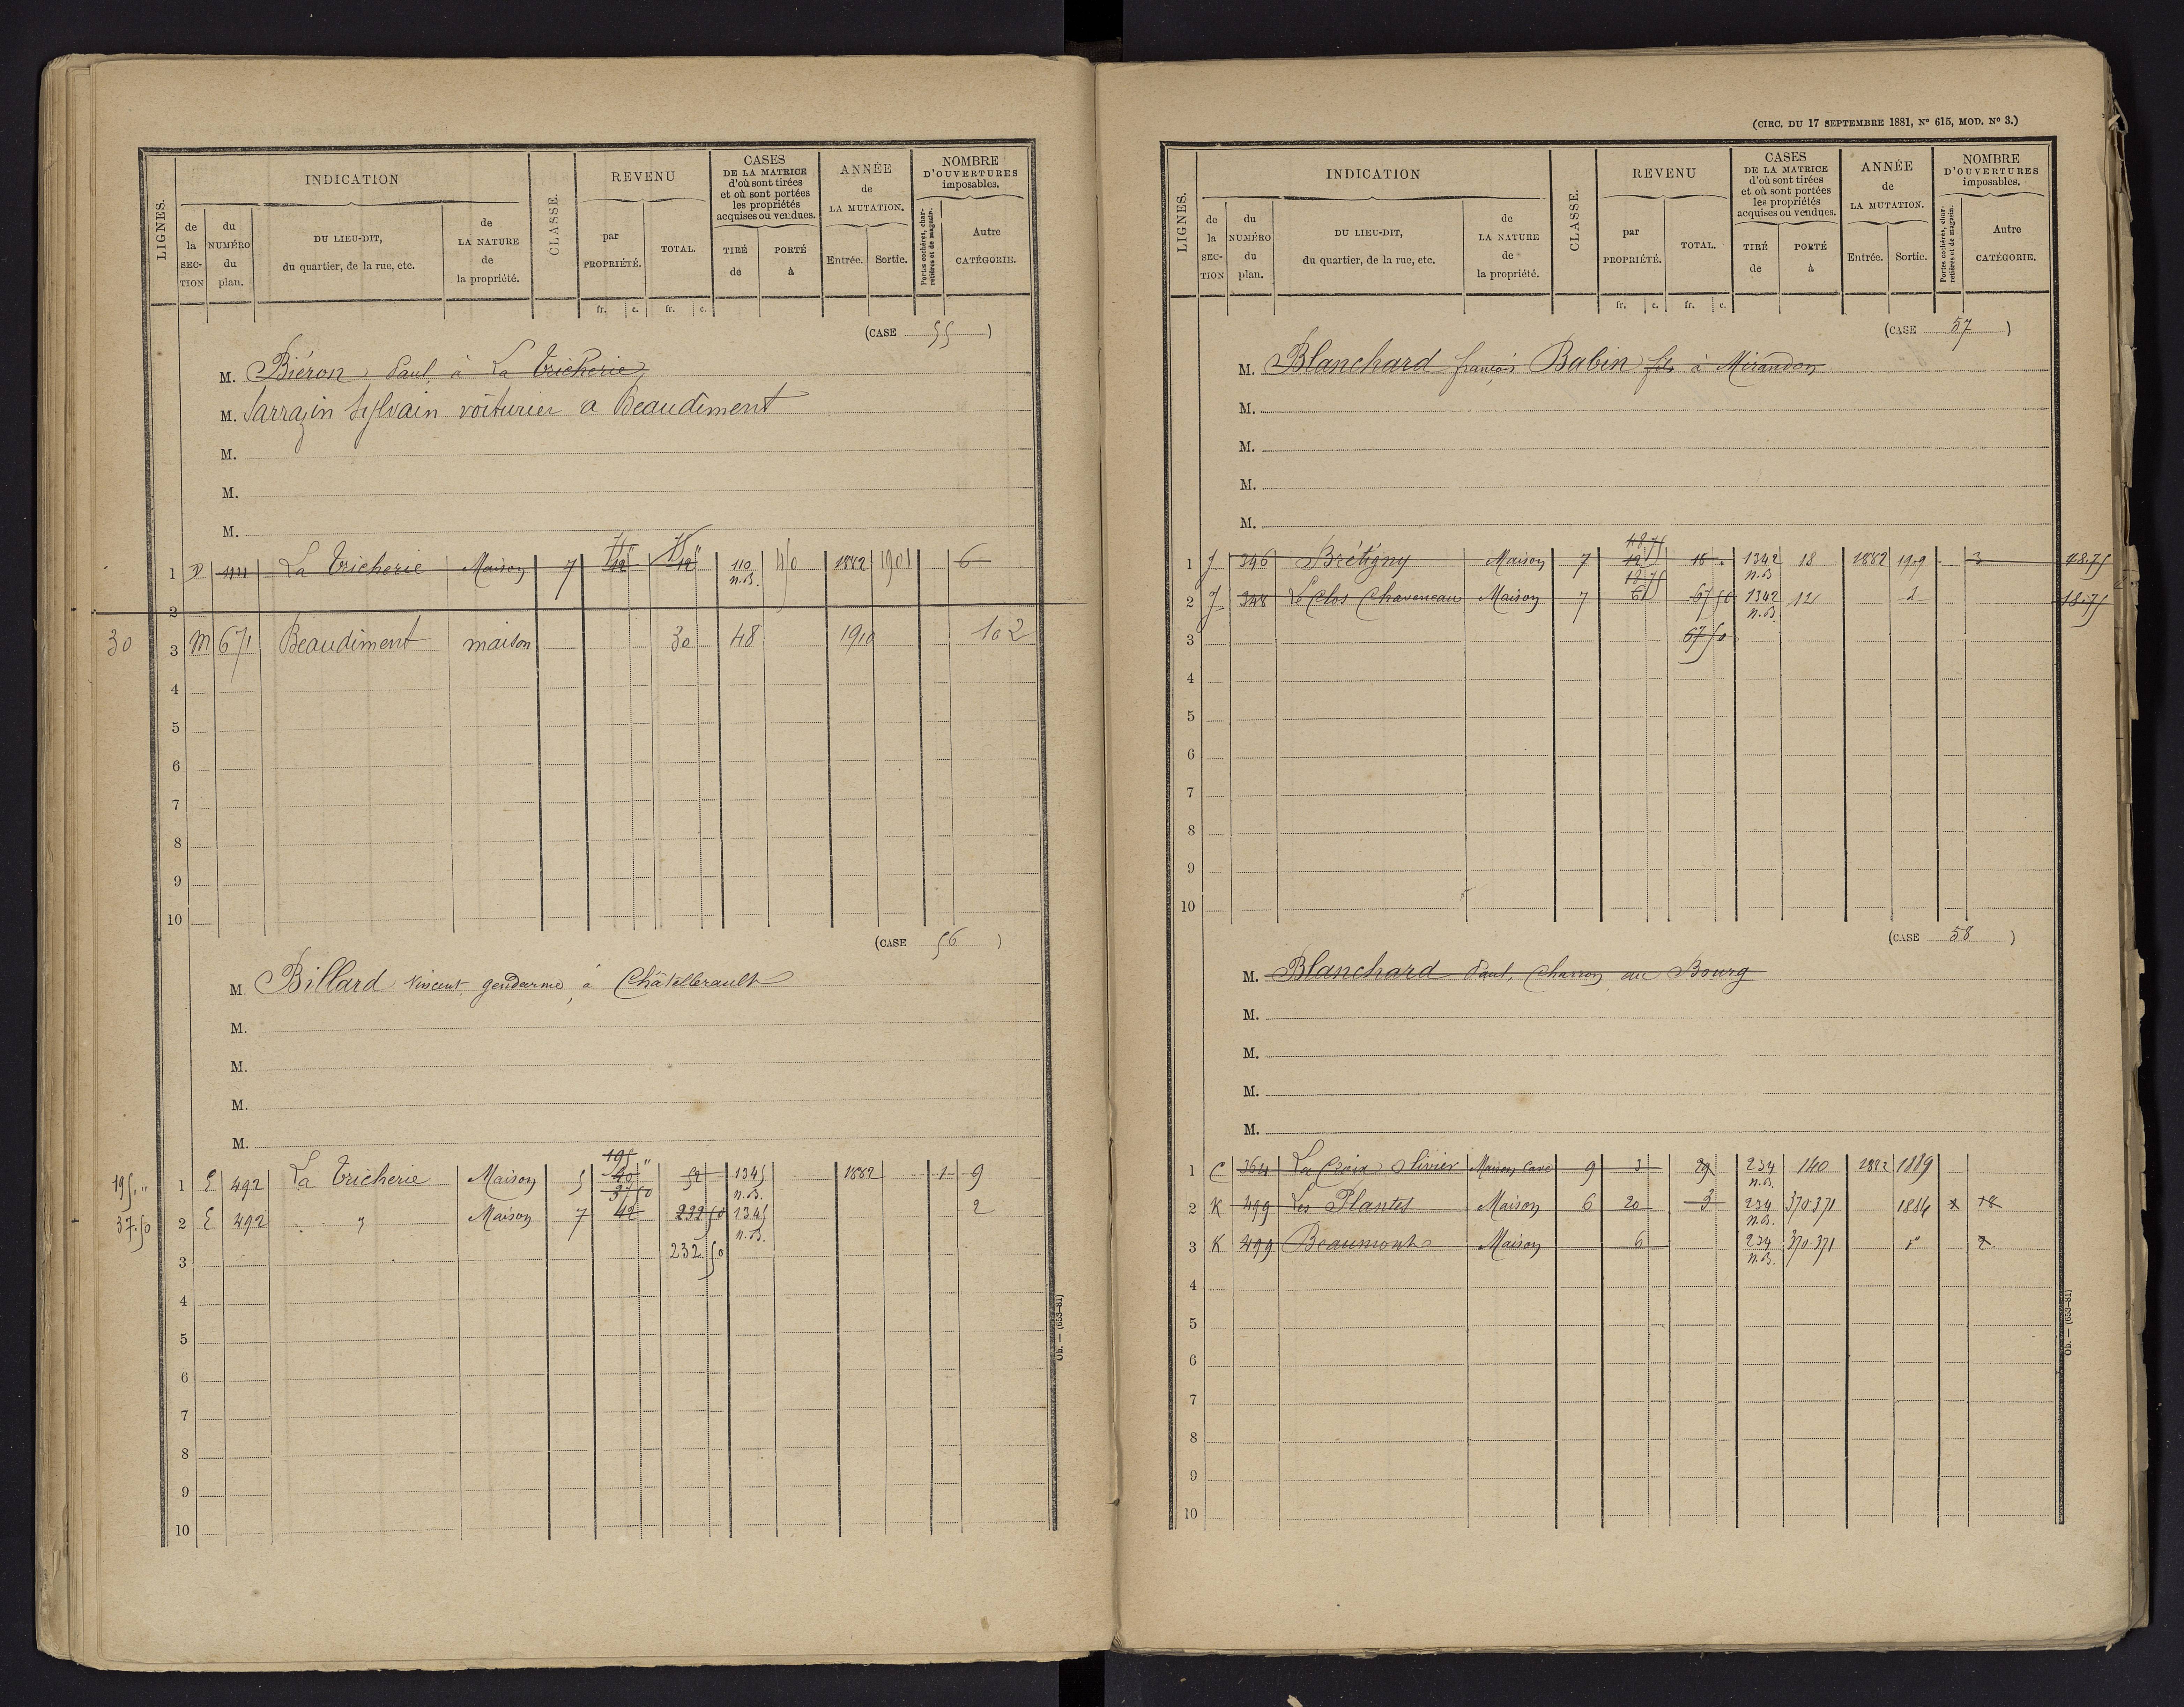 LIGNES.
INDICATION
de la SECTION
du NUMÉRO du plan.
DU LIEU-DIT, du quartier, de la rue, etc.
de LA NATURE de la propriété.
CLASSE.
REVENU
par PROPRIÉTÉ.
TOTAL.
fr. c. fr. c.
CASES DE LA MATRICE d'où sont tirées et où sont portées les propriétés acquises ou vendues.
TIRÉ de
PORTÉ à
ANNÉE de LA MUTATION.
Entrée. Sortie.
NOMBRE D'OUVERTURES imposables.
Portes cochères, charretières et de magasin.
Autre CATÉGORIE.
(CASE 55)
M. Biéron, Paul, à La Tricherie
M. Sarrazin Sylvain voiturier a Beaudiment
M.
M.
M.
1 D La Tricherie Maison 7 12 12 110 n.B. 1882 1901 6
2
30 3 M 671 Beaudiment maison 30 48 1910 102
4
5
6
7
8
9
10
(CASE 56)
M. Billard Vincent gendarme, à Châtellerault
M.
M.
M.
M.
195 "
195 " 1 E 492 La Tricherie Maison 5 40 52 1345 n.B. 1882 1 9
37.50
37.50 2 E 492 " Maison 7 12 232 50 1345 n.B. 2
3 232.50
4
5
6
7
8
9
10
Ob. — (653-81)
(CIRC. DU 17 SEPTEMBRE 1881, Nº 615, MOD. Nº 3.)
LIGNES.
INDICATION
de la SECTION
du NUMÉRO du plan.
DU LIEU-DIT, du quartier, de la rue, etc.
de LA NATURE de la propriété.
CLASSE.
REVENU
par PROPRIÉTÉ.
TOTAL.
fr. c. fr. c.
CASES DE LA MATRICE d'où sont tirées et où sont portées les propriétés acquises ou vendues.
TIRÉ de
PORTÉ à
ANNÉE de LA MUTATION.
Entrée. Sortie.
NOMBRE D'OUVERTURES imposables.
Portes cochères, charretières et de magasin.
Autre CATÉGORIE.
(CASE 57)
M. Blanchard françois Babin fils à Mirandon
M.
M.
M.
M.
48 75
1 J 346 Brétigny Maison 7 12 18 1342 n.B 18 1882 1909 3 48.75
18 75
2 J 348 Le Clos Chaveneau Maison 7 6 67 50 1342 n.B. 12 2 18.75
3 67 50
4
5
6
7
8
9
10
(CASE 58)
M. Blanchard Paul, Charron au Bourg
M.
M.
M.
M.
1 C 364 La Croix Olivier Maison Cave 9 3 29 234 n.B. 140 1882 1889
2 K 499 Les Plantes Maison 6 20 3 234 n.B. 370.371 1884 18
3 K 499 Beaumont Maison 6 234 n.B. 370.371 2
4
5
6
7
8
9
10
Ob. — (653-81)